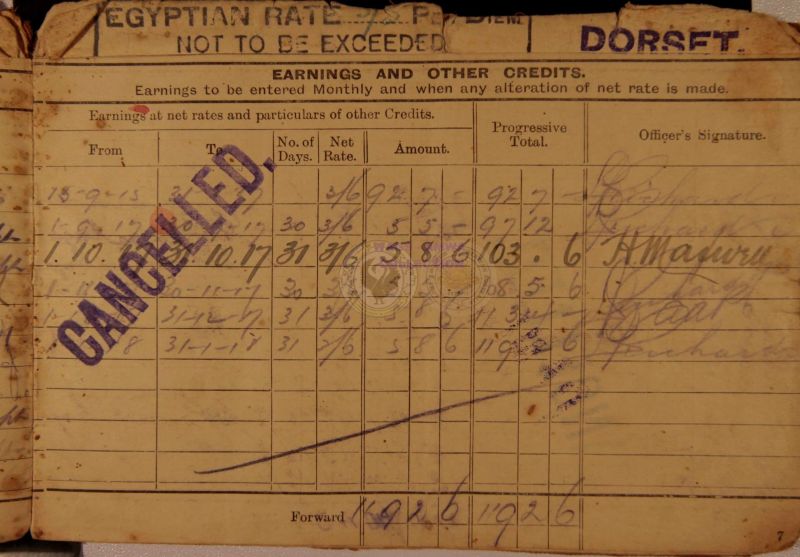 EGYPTIAN RATE PER DIEM
NOT TO BE EXCEEDED
DORSET.
EARNINGS AND OTHER CREDITS.
Earnings to be entered Monthly and when any alteration of net rate is made.
Earnings at net rates and particulars of other Credits.
Progressive Total.
Officer's Signature.
From To No. of Days. Net Rate. Amount.
13-9-15 31 3/6 92 7 - 92 7 -
1-9-17 30 17 30 3/6 5 5 - 97 12
1.10. 31.10.17 31 3/6 5 8 6 103 . 6
30-11-17 30 5 5 108 5 6
31-12-17 31 3/6 5 8 6 113 14 -
8 31-1-18 31 3/6 5 8 6 119 2 6
CANCELLED.
Forward 119 2 6 119 2 6
7